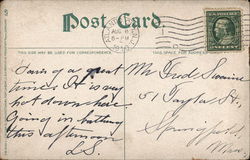 Post Card
THIS SIDE MAY BE USED FOR CORRESPONDENCE
THIS SPACE FOR ADDRESS
AUG 8
6-PM
Having a great
time. It is very
hot down here
Going in bathing
this afternoon
L.S.
Mr Fred
51 Taylor St.
Springfield
Mass